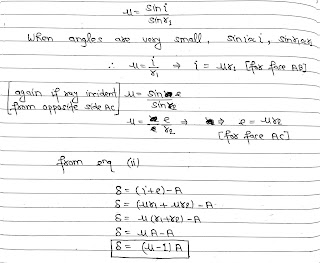 μ = sin i / sin r₁
When angles are very small, sin i ∝ i, sin r₁ ∝ r₁
∴ μ = i / r₁ ⇒ i = μr₁ [for face AB]
[again if ray incident from opposite side AC] μ = sin e / sin r₂
μ = e / r₂ ⇒ e = μr₂
[for face AC]
from eqⁿ (ii)
δ = (i+e) - A
δ = (μr₁ + μr₂) - A
δ = μ(r₁+r₂) - A
δ = μA - A
δ = (μ-1)A